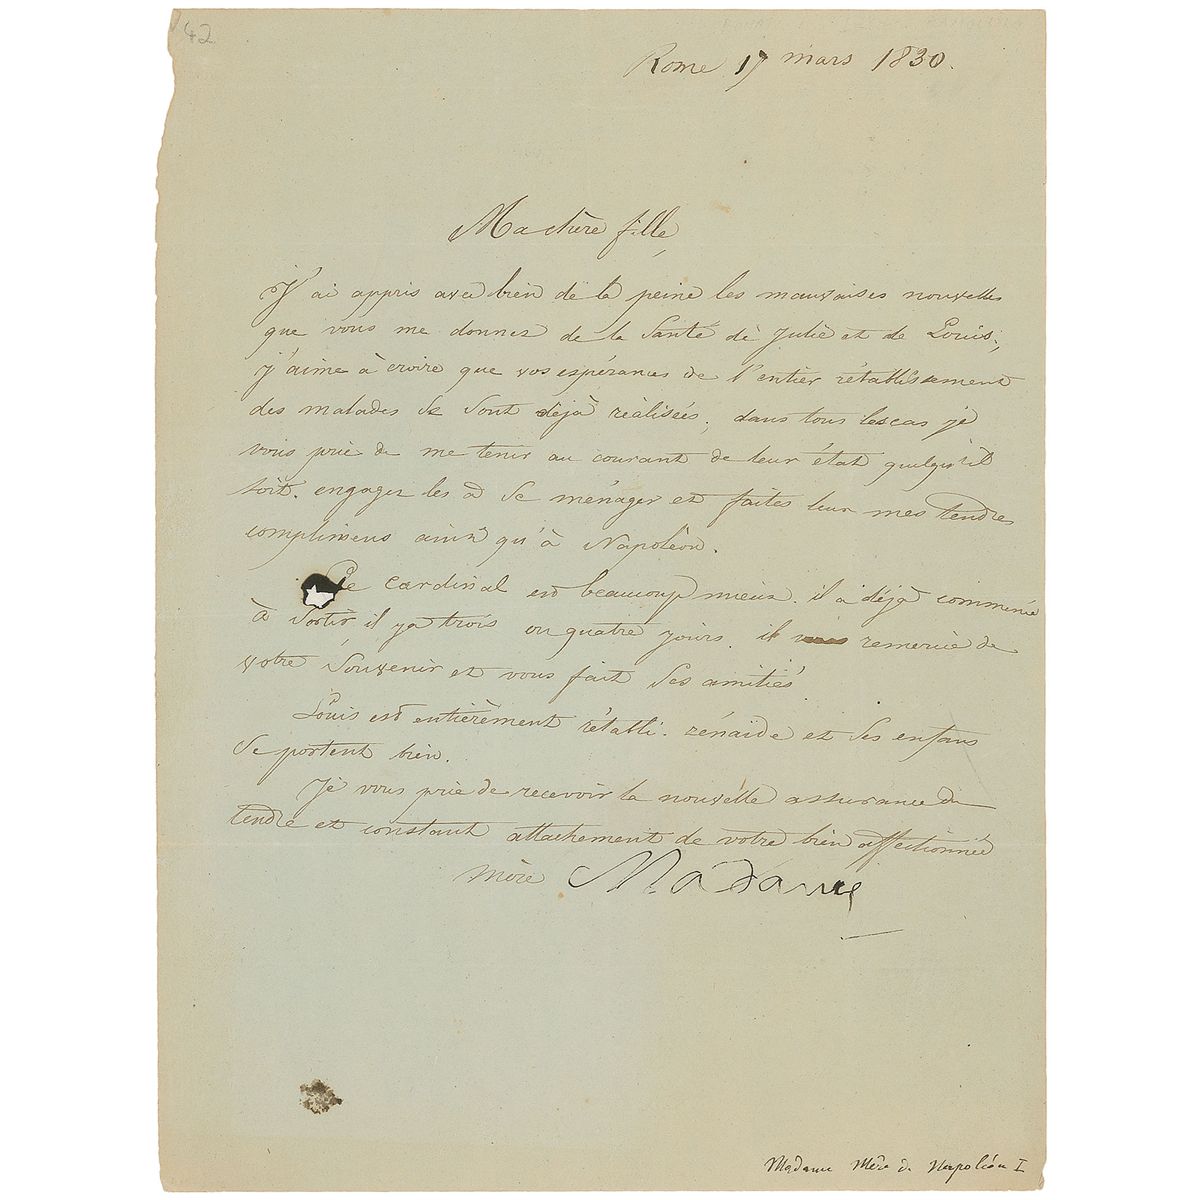 42
Rome 17 mars 1830.
Ma chère fille,
J'ai appris avec bien de la peine les mauvaises nouvelles
que vous me donnez de la santé de Julie et de Louis;
j'aime à croire que vos espérances de l'entier rétablissement
des malades se sont déjà réalisées, dans tous les cas je
vous prie de me tenir au courant de leur état quelqu'il
soit. engagez les à se ménager et faites leur mes tendres
complimens ainsi qu'à Napoléon.
Le cardinal est beaucoup mieux. il a déjà commencé
à sortir il ya trois ou quatre jours. il remercie de
votre souvenir et vous fait ses amitiés
Louis est entièrement rétabli. zénaïde et ses enfans
se portent bien.
Je vous prie de recevoir la nouvelle assurance du
tendre et constant attachement de votre bien affectionnée
mère Madame
Madame Mère de Napoléon I